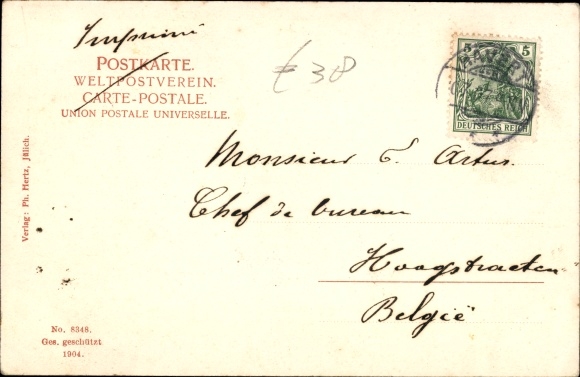 Imprimé
POSTKARTE.
WELTPOSTVEREIN.
CARTE-POSTALE.
UNION POSTALE UNIVERSELLE.
€ 38
5 5
DEUTSCHES REICH
Monsieur E. Artus.
Chef de bureau
Hoogstraeten
België
Verlag: Ph. Hertz, Jülich.
No. 8348.
Ges. geschützt
1904.